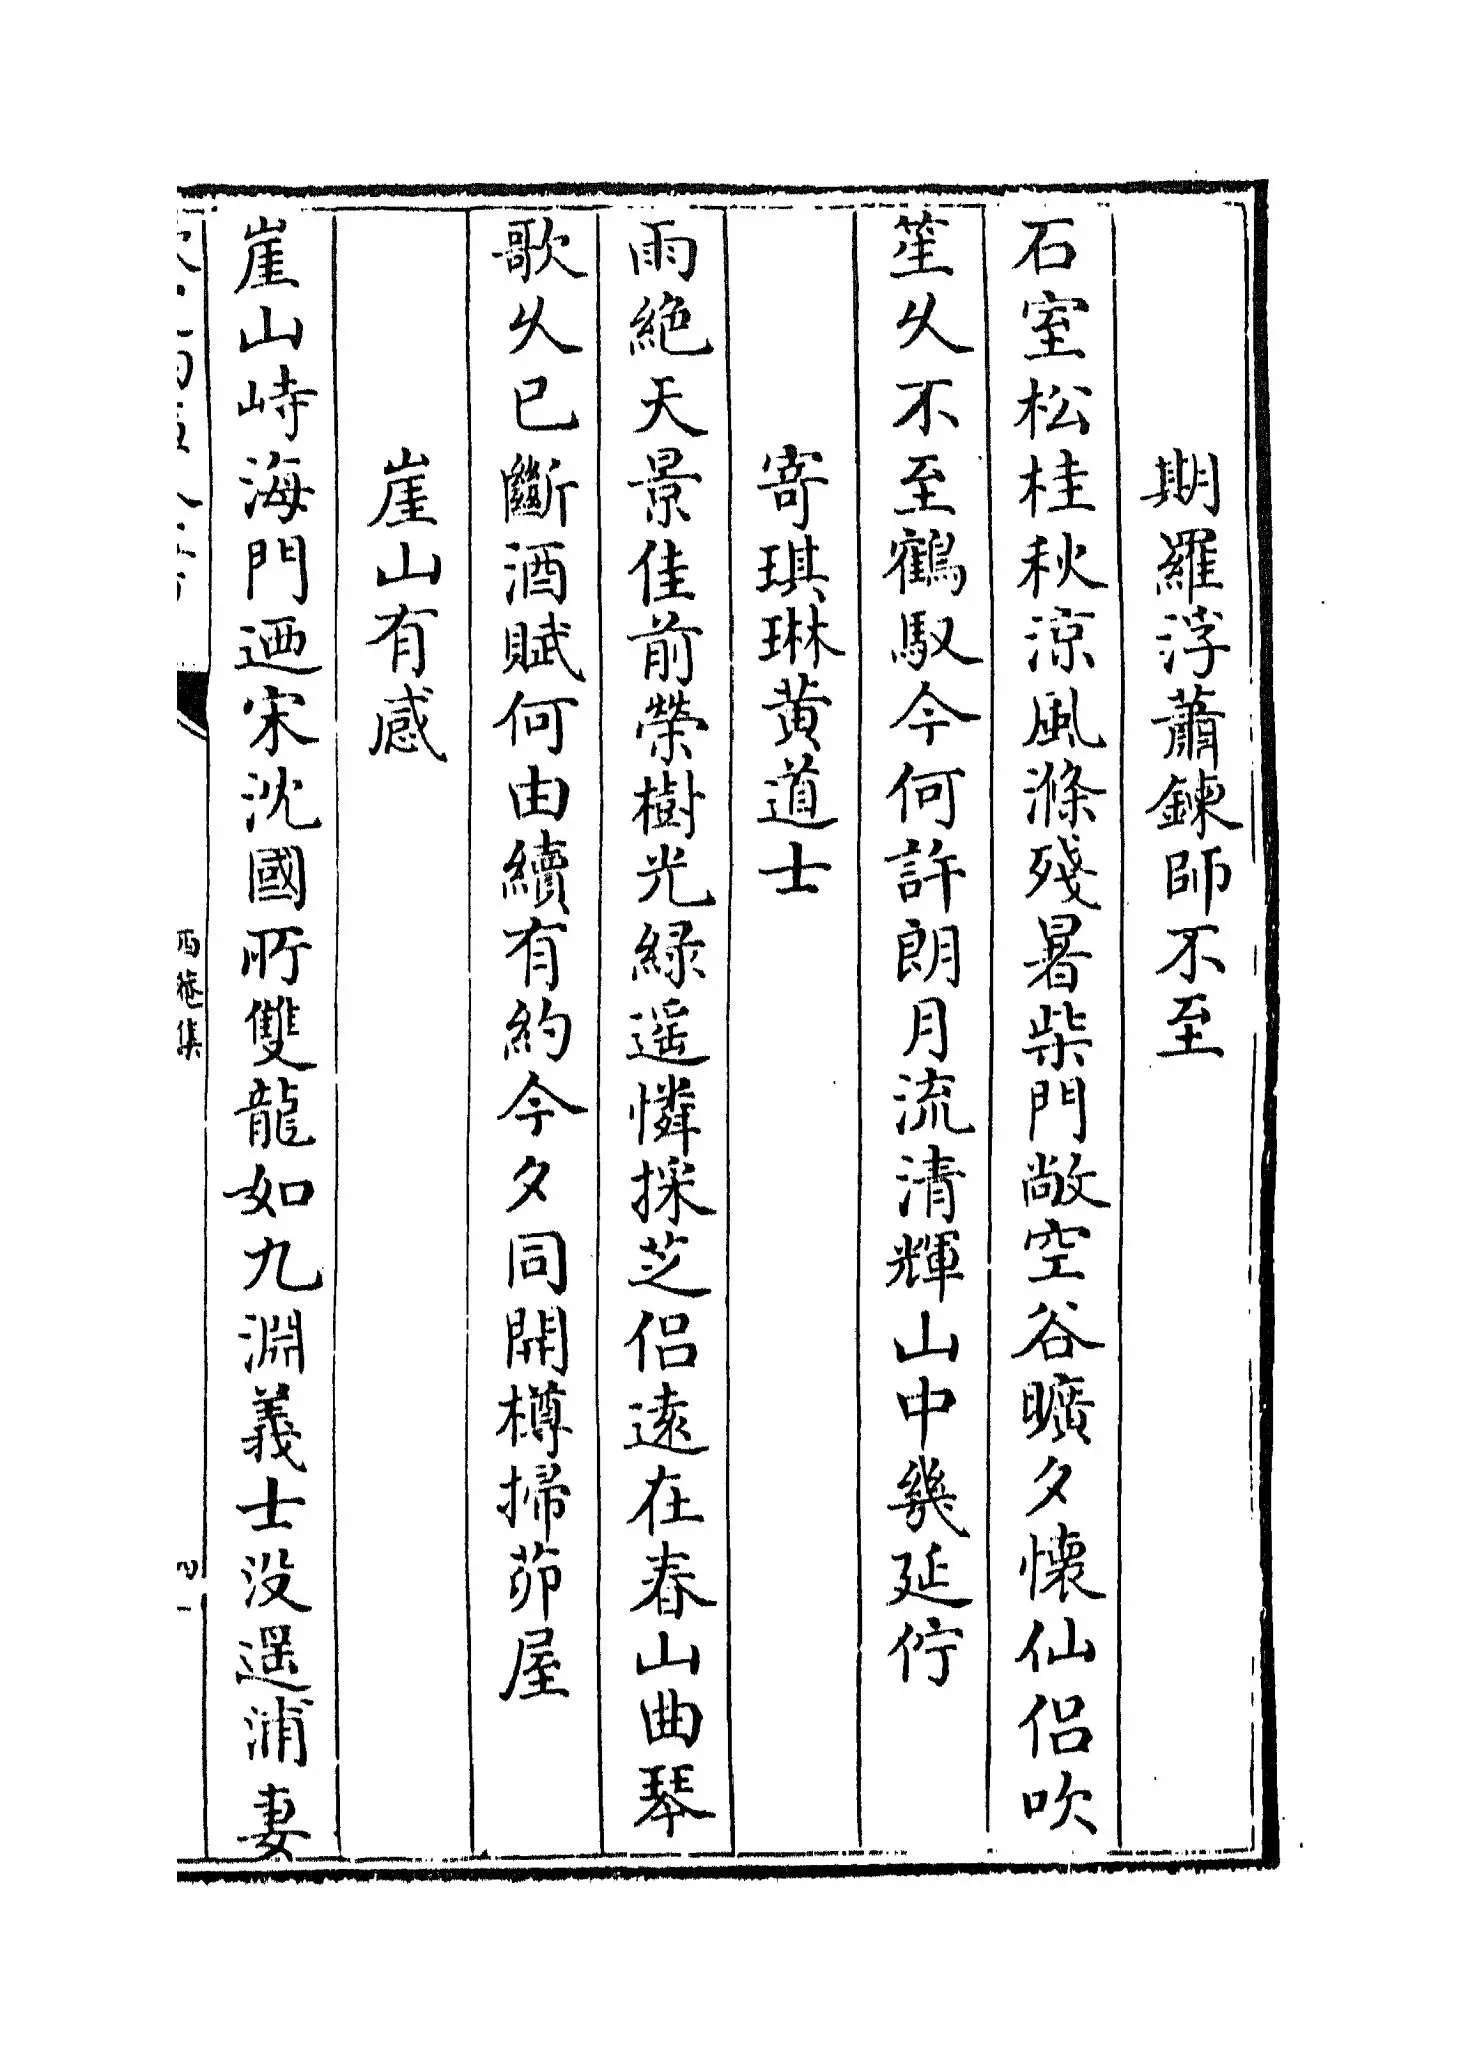 期羅浮蕭鍊師不至
石室松桂秋涼風滌殘暑柴門敞空谷曠夕懷仙侣吹
笙久不至鶴馭今何許朗月流清輝山中幾延佇
寄琪琳黄道士
雨絶天景佳前榮樹光緑遥憐採芝侣遠在春山曲琴
歌久已斷酒賦何由續有約今夕同開樽掃茆屋
崖山有感
崖山峙海門迺宋沈國所雙龍如九淵義士没遝浦妻
西菴集